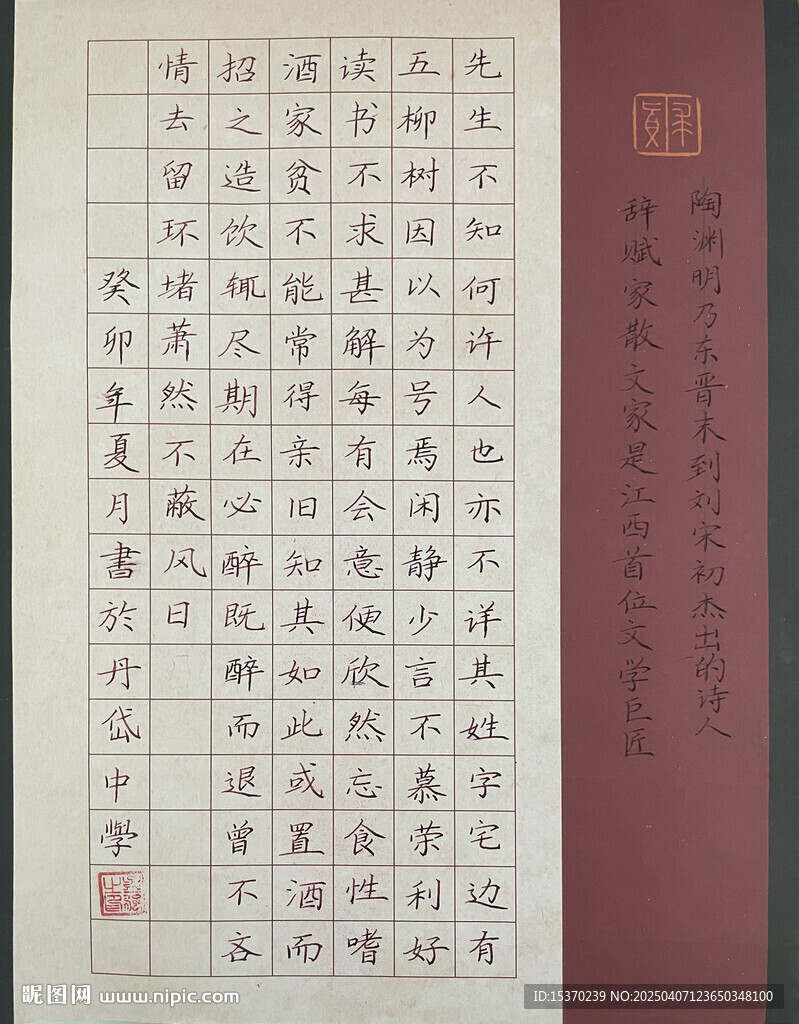 陶渊明乃东晋末到刘宋初杰出的诗人
辞赋家散文家是江西首位文学巨匠
先生不知何许人也亦不详其姓字宅边有
五柳树因以为号焉闲静少言不慕荣利好
读书不求甚解每有会意便欣然忘食性嗜
酒家贫不能常得亲旧知其如此或置酒而
招之造饮辄尽期在必醉既醉而退曾不吝
情去留环堵萧然不蔽风日
癸卯年夏月書於丹岱中學
昵图网 www.nipic.com
ID:15370239 NO:20250407123650348100